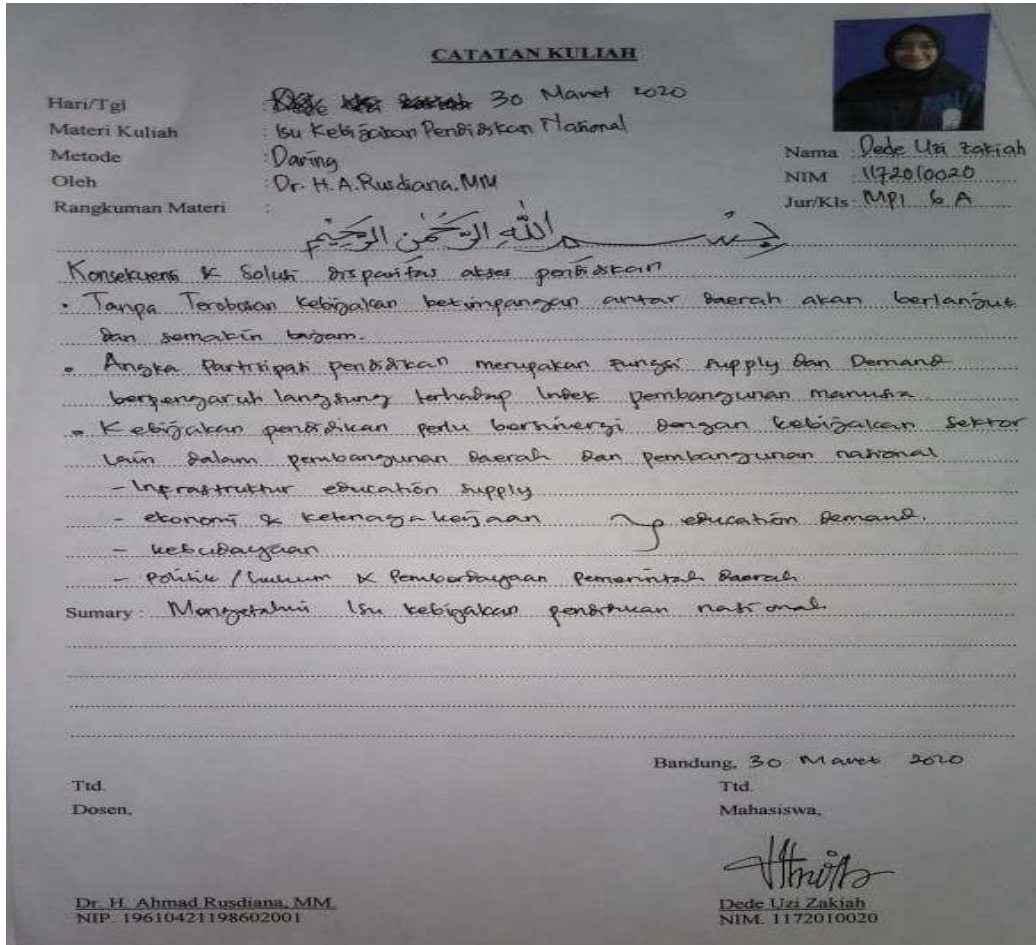 CATATAN KULIAH
Hari/Tgl : 30 Maret 2020
Materi Kuliah : Isu Kebijakan Pendidikan Nasional
Metode : Daring
Oleh : Dr. H. A. Rusdiana. MM
Rangkuman Materi :
Nama : Dede Uzi Zakiah
NIM : 1172010020
Jur/Kls : MPI 6 A
بسم الله الرحمن الرحيم
Konsekuensi & Solusi disparitas akses pendidikan
• Tanpa Terobosan Kebijakan ketimpangan antar daerah akan berlanjut
dan semakin tajam.
• Angka Partisipasi pendidikan merupakan fungsi supply dan Demand
berpengaruh langsung terhadap Indek pembangunan manusia
• Kebijakan pendidikan perlu bersinergi dengan kebijakan sektor
lain dalam pembangunan daerah dan pembangunan nasional
- Infrastruktur education supply
- ekonomi & ketenagakerjaan education demand.
- kebudayaan
- Politik / hukum & Pemberdayaan Pemerintah daerah
Sumary : Mengetahui Isu kebijakan pendidikan nasional.
Bandung, 30 Maret 2020
Ttd. Ttd.
Dosen, Mahasiswa,
Dr. H. Ahmad Rusdiana, MM. Dede Uzi Zakiah
NIP. 19610421198602001 NIM. 1172010020